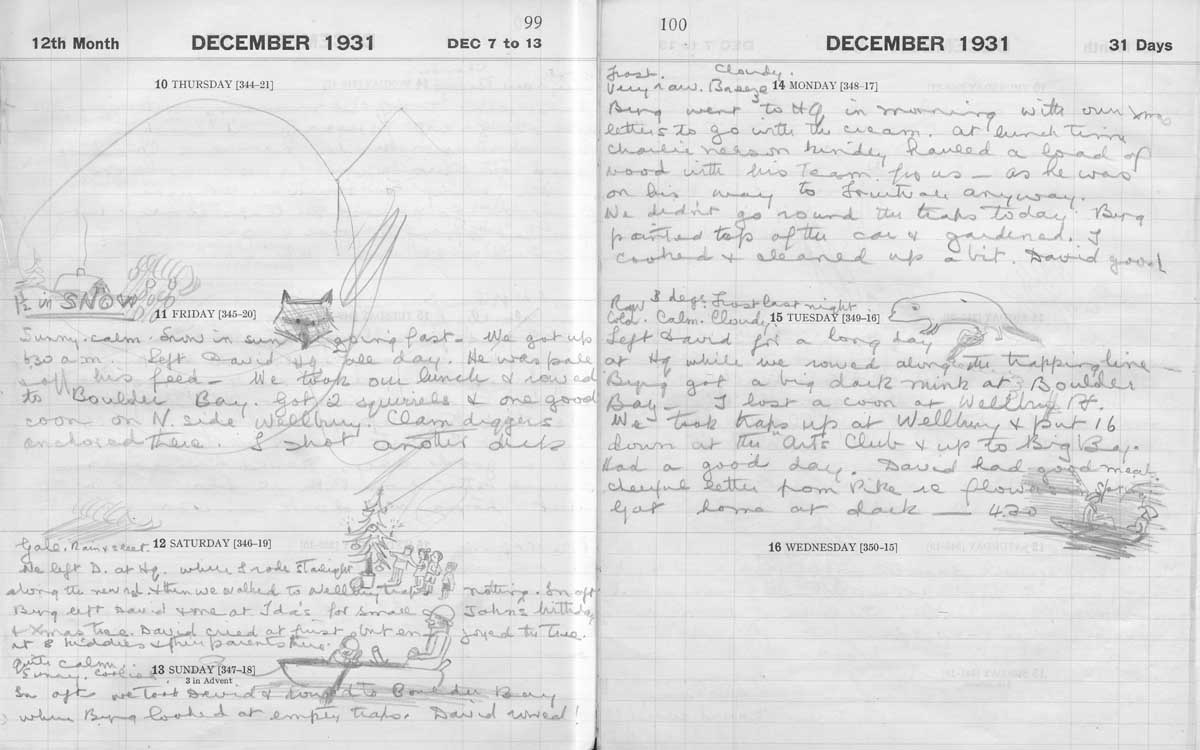 99
12th Month DECEMBER 1931 DEC 7 to 13
10 THURSDAY [344–21]
1½ in SNOW
11 FRIDAY [345–20]
Sunny. calm. Snow in sun going fast. We got up
6.30 a.m. Left David Hq all day. He was pale
& off his feed – We took our lunch & rowed
to Boulder Bay. Got 2 squirrels & one good
coon on N. side Wellbury. Clam diggers
anchored there. I shot another duck
12 SATURDAY [346–19]
Gale. Rain & sleet.
We left D. at Hq. where I rode Starlight
along the new rd & then we walked to Wellbury traps nothing. In aft
Byng left David & me at Ida's for small John's birthday
& Xmas tree. David cried at first but enjoyed the tree.
at 8 kiddies & their parents there.
13 SUNDAY [347–18]
3 in Advent
quite calm.
Sunny, cold
In aft we took David & rowed to Boulder Bay
where Byng looked at empty traps. David rowed!
100
DECEMBER 1931 31 Days
Frost. Cloudy.
Very raw. Breeze 14 MONDAY [348–17]
Byng went to HQ in morning with our Xmas
letters to go with the cream. At lunch time
Charlie Nelson kindly hauled a load of
wood with his team for us – as he was
on his way to Fruitvale anyway.
We didn't go round the traps today. Byng
painted top of the car & gardened. I
cooked & cleaned up a bit. David good
Raw 3 degs. Frost last night
Cold. Calm. Cloudy. 15 TUESDAY [349–16]
Left David for a long day
at Hq while we rowed along the trapping line –
Byng got a big dark mink at Boulder
Bay – I lost a coon at Wellbury Pt.
We took traps up at Wellbury & put 16
down at the "Arts Club & up to Big Bay.
Had a good day. David had good meat.
cheerful letter from Pike re flowers
Got home at dark — 4.30
16 WEDNESDAY [350–15]